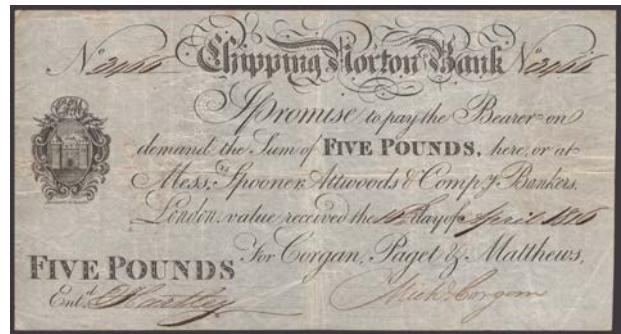 No 2466 Chipping Norton Bank No 2466
I promise to pay the Bearer on
demand the Sum of FIVE POUNDS, here, or at
Messrs. Spooner Attwoods & Compy. Bankers,
London, value received the day of April 1816
For Corgan, Paget & Matthews,
FIVE POUNDS
Entd. Hartley Michl Corgan